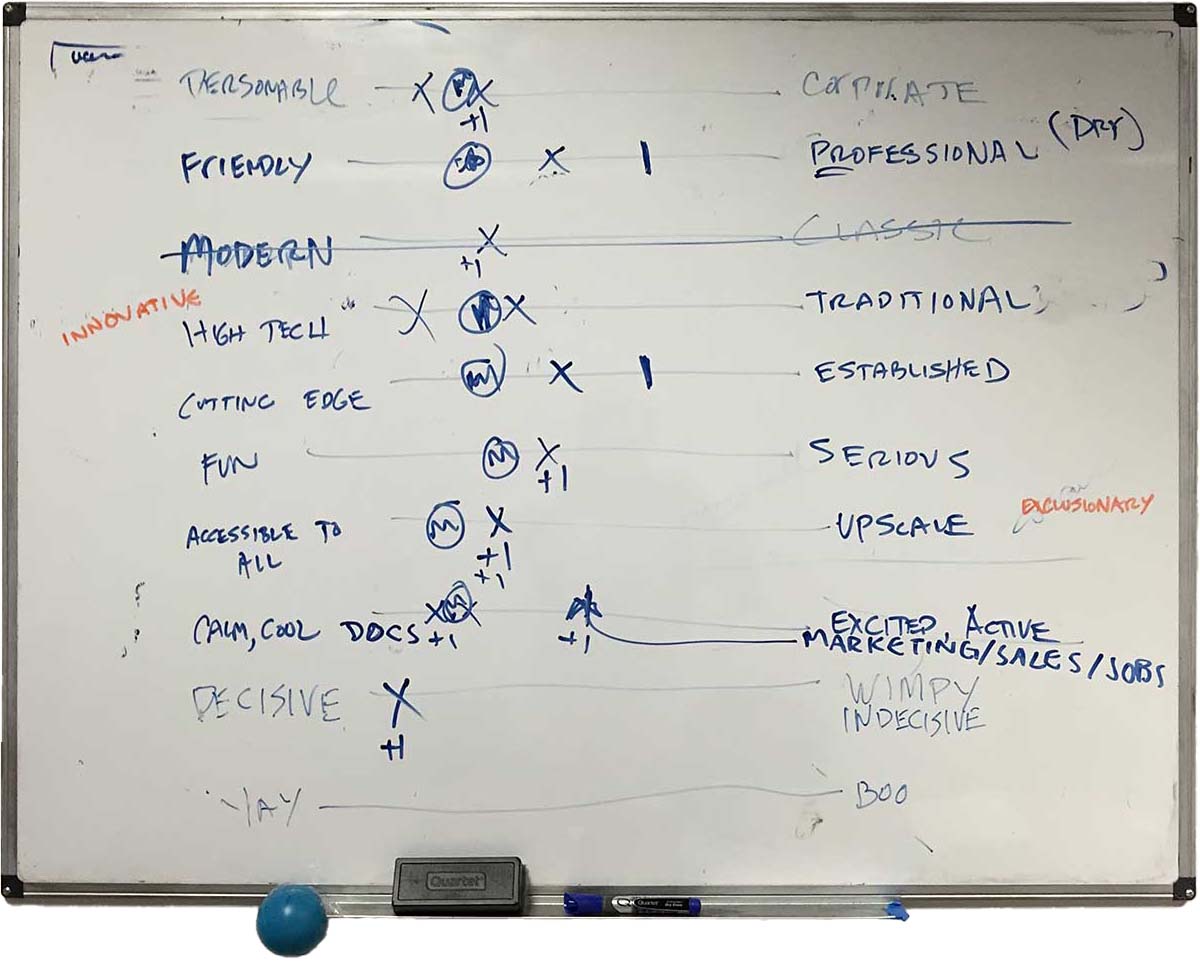 PERSONABLE X X CORPORATE
+1
FRIENDLY X | PROFESSIONAL (DRY)
MODERN X CLASSIC
+1
INNOVATIVE
HIGH TECH X M X TRADITIONAL
CUTTING EDGE M X | ESTABLISHED
FUN M X SERIOUS
+1
EXCLUSIONARY
ACCESSIBLE TO ALL M X UPSCALE
+1
+1
CALM, COOL DOCS X M X EXCITED, ACTIVE
+1 +1 MARKETING/SALES/JOBS
DECISIVE X WIMPY
+1 INDECISIVE
YAY BOO
Quartet
Quartet